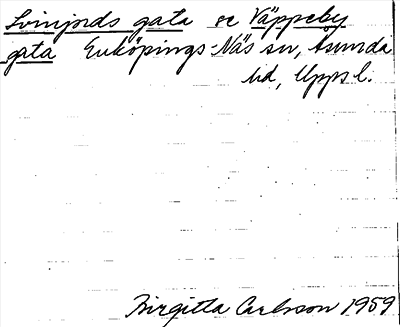 Svinjords gata se Väppeby
gata Enköpings-Näs sn, Åsunda
hd, Uppsl.
Birgitta Carlsson 1959